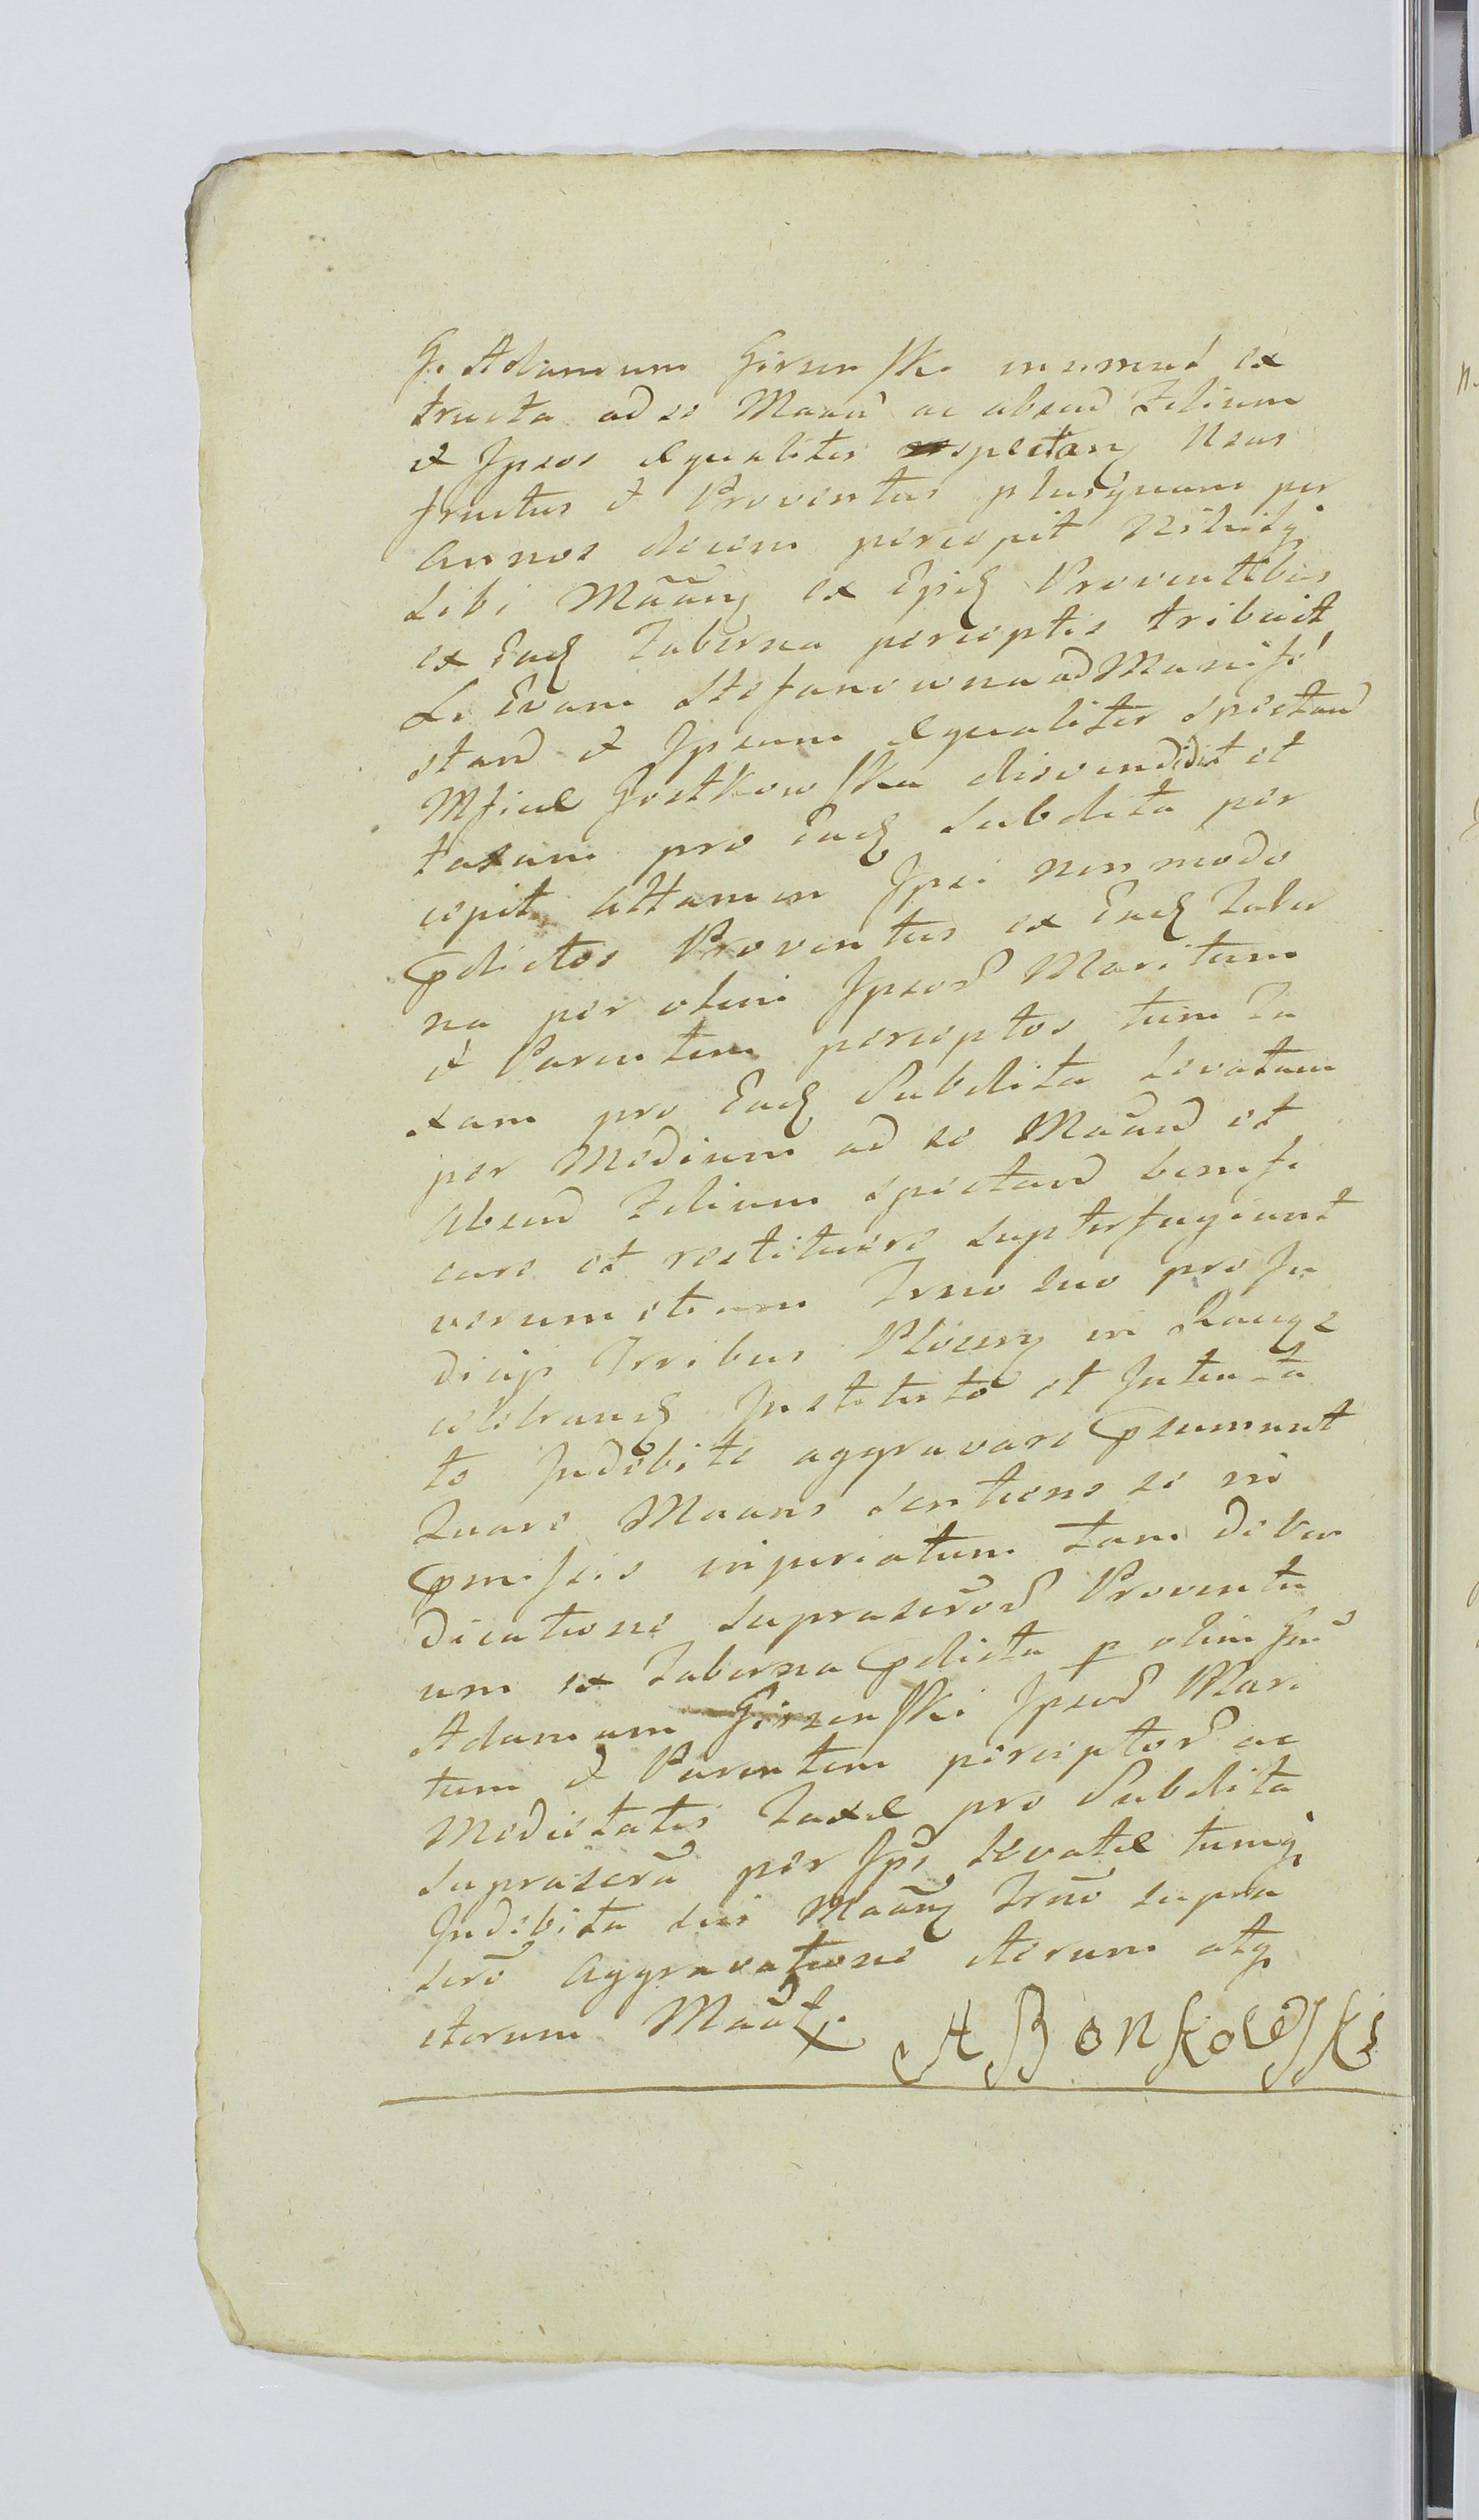 G. Adamum Girzenski ex
tructa ad se Maan̄ ac absend Filium
et Ipsos aequaliter spectan Usus
fructus et Proventus plusquam per
annos decem percepit Nihilq
sibi Maañ ex Proventibus
ex Eadȝ Taberna perceptis tribuit
L. Evam Stefanowna ad Manife
stand et Ipsum aequaliter spectand
Mficae Gostkowska divendidit et
taxam pro Eadȝ Subdita per
cepit attamen Ipsi non modo
pdictos Proventus ex Eadȝ Taber
na per olim Ipsor Maritum
et Parentem perceptos tum Ta
xam pro Eadȝ Subdita levatam
per Medium ad se Maand et
absend Filium spectand benifi
care et restituere supterfugiunt
verum etiam Trno suo pro Ju
dicijs Trribus Plocen in Raciąz
celebrandȝ Instituto et Intenta
to Indebite aggravare psumunt
Quare Maans sentiens se in
pmissis injuriatum tam de Vin
dicatione suprascror Proventu
um ex Taberna pdicta p olim Gm
Adamum Girzenski Ipsor Mari
tum et Parentem perceptor ac
Medietatis Taxae pro Subdita
suprascra per Ips levatae tumq
Indebita sui Maan Trno supra
scro Aggravatione iterum atq
iterum Maat.
A Bonkowski